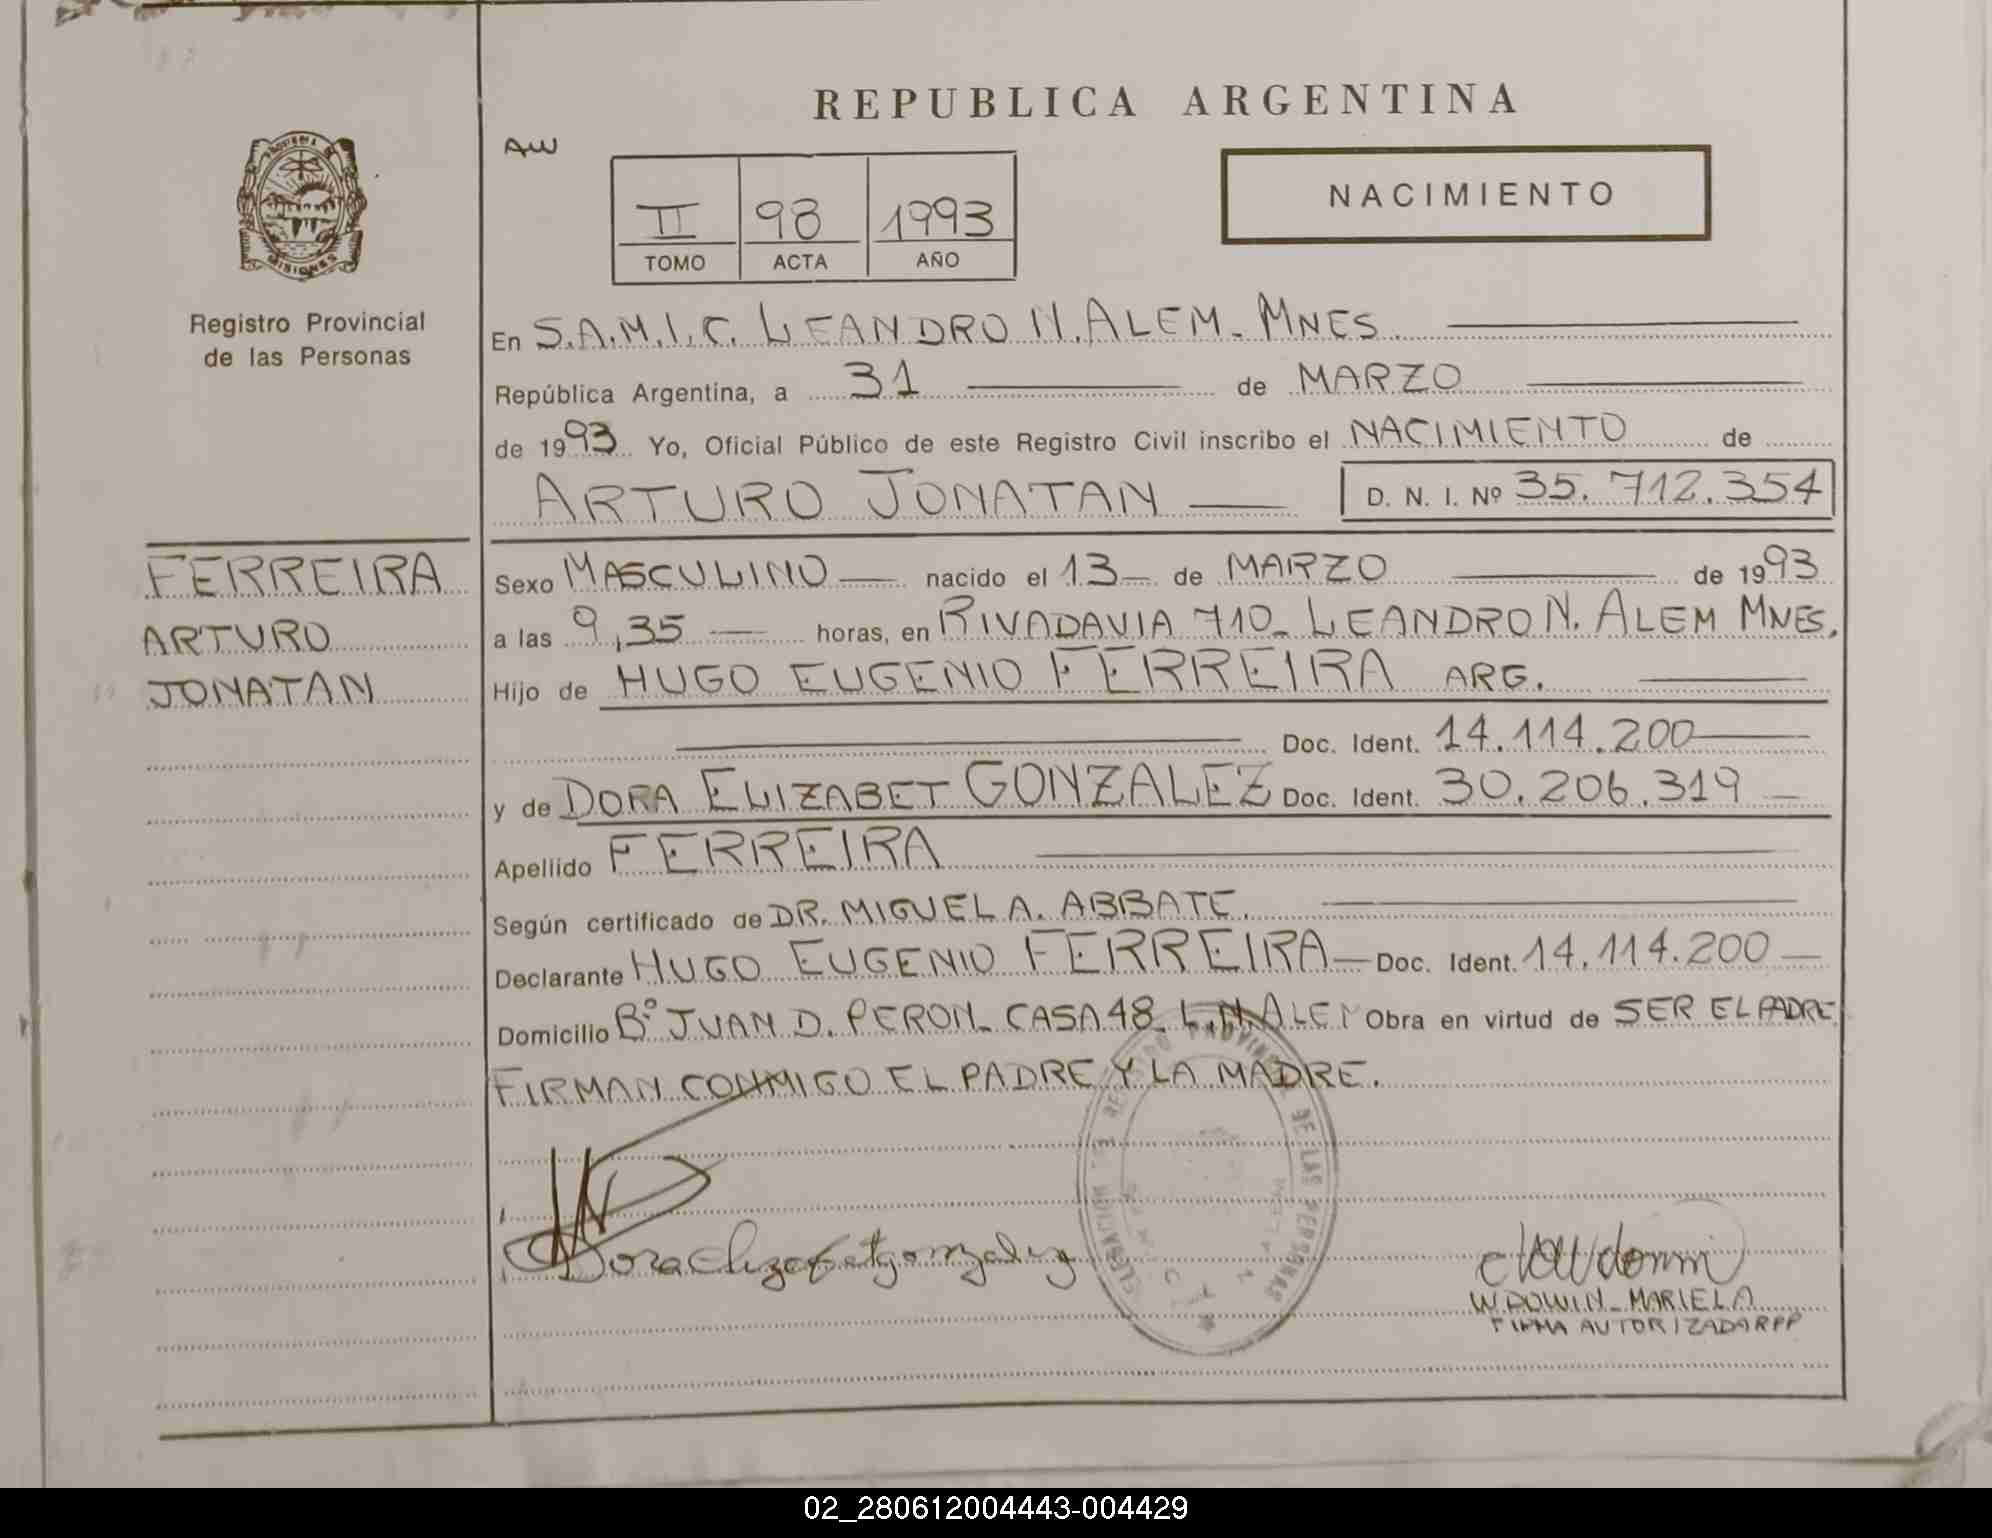 REPUBLICA ARGENTINA
AW
II 98 1993
TOMO ACTA AÑO
NACIMIENTO
PROVINCIA DE
MISIONES
Registro Provincial
de las Personas
En S.A.M.I.C. LEANDRO N. ALEM - MNES.
República Argentina, a 31 de MARZO
de 1993 Yo, Oficial Público de este Registro Civil inscribo el NACIMIENTO de
ARTURO JONATAN D. N. I. Nº 35.712.354
FERREIRA
ARTURO
JONATAN
Sexo MASCULINO nacido el 13 de MARZO de 1993
a las 9,35 horas, en RIVADAVIA 710 - LEANDRO N. ALEM MNES.
Hijo de HUGO EUGENIO FERREIRA ARG.
Doc. Ident. 14.114.200
y de DORA ELIZABET GONZALEZ Doc. Ident. 30.206.319
Apellido FERREIRA
Según certificado de DR. MIGUEL A. ABBATE.
Declarante HUGO EUGENIO FERREIRA Doc. Ident. 14.114.200
Domicilio Bº JUAN D. PERON - CASA 48 - L.N. ALEM Obra en virtud de SER EL PADRE
FIRMAN CONMIGO EL PADRE Y LA MADRE.
Dora Elizabet gonzalez
PROVINCIAL DE LAS PERSONAS
WDOWIN - MARIELA
FIRMA AUTORIZADA RPP
02_280612004443-004429